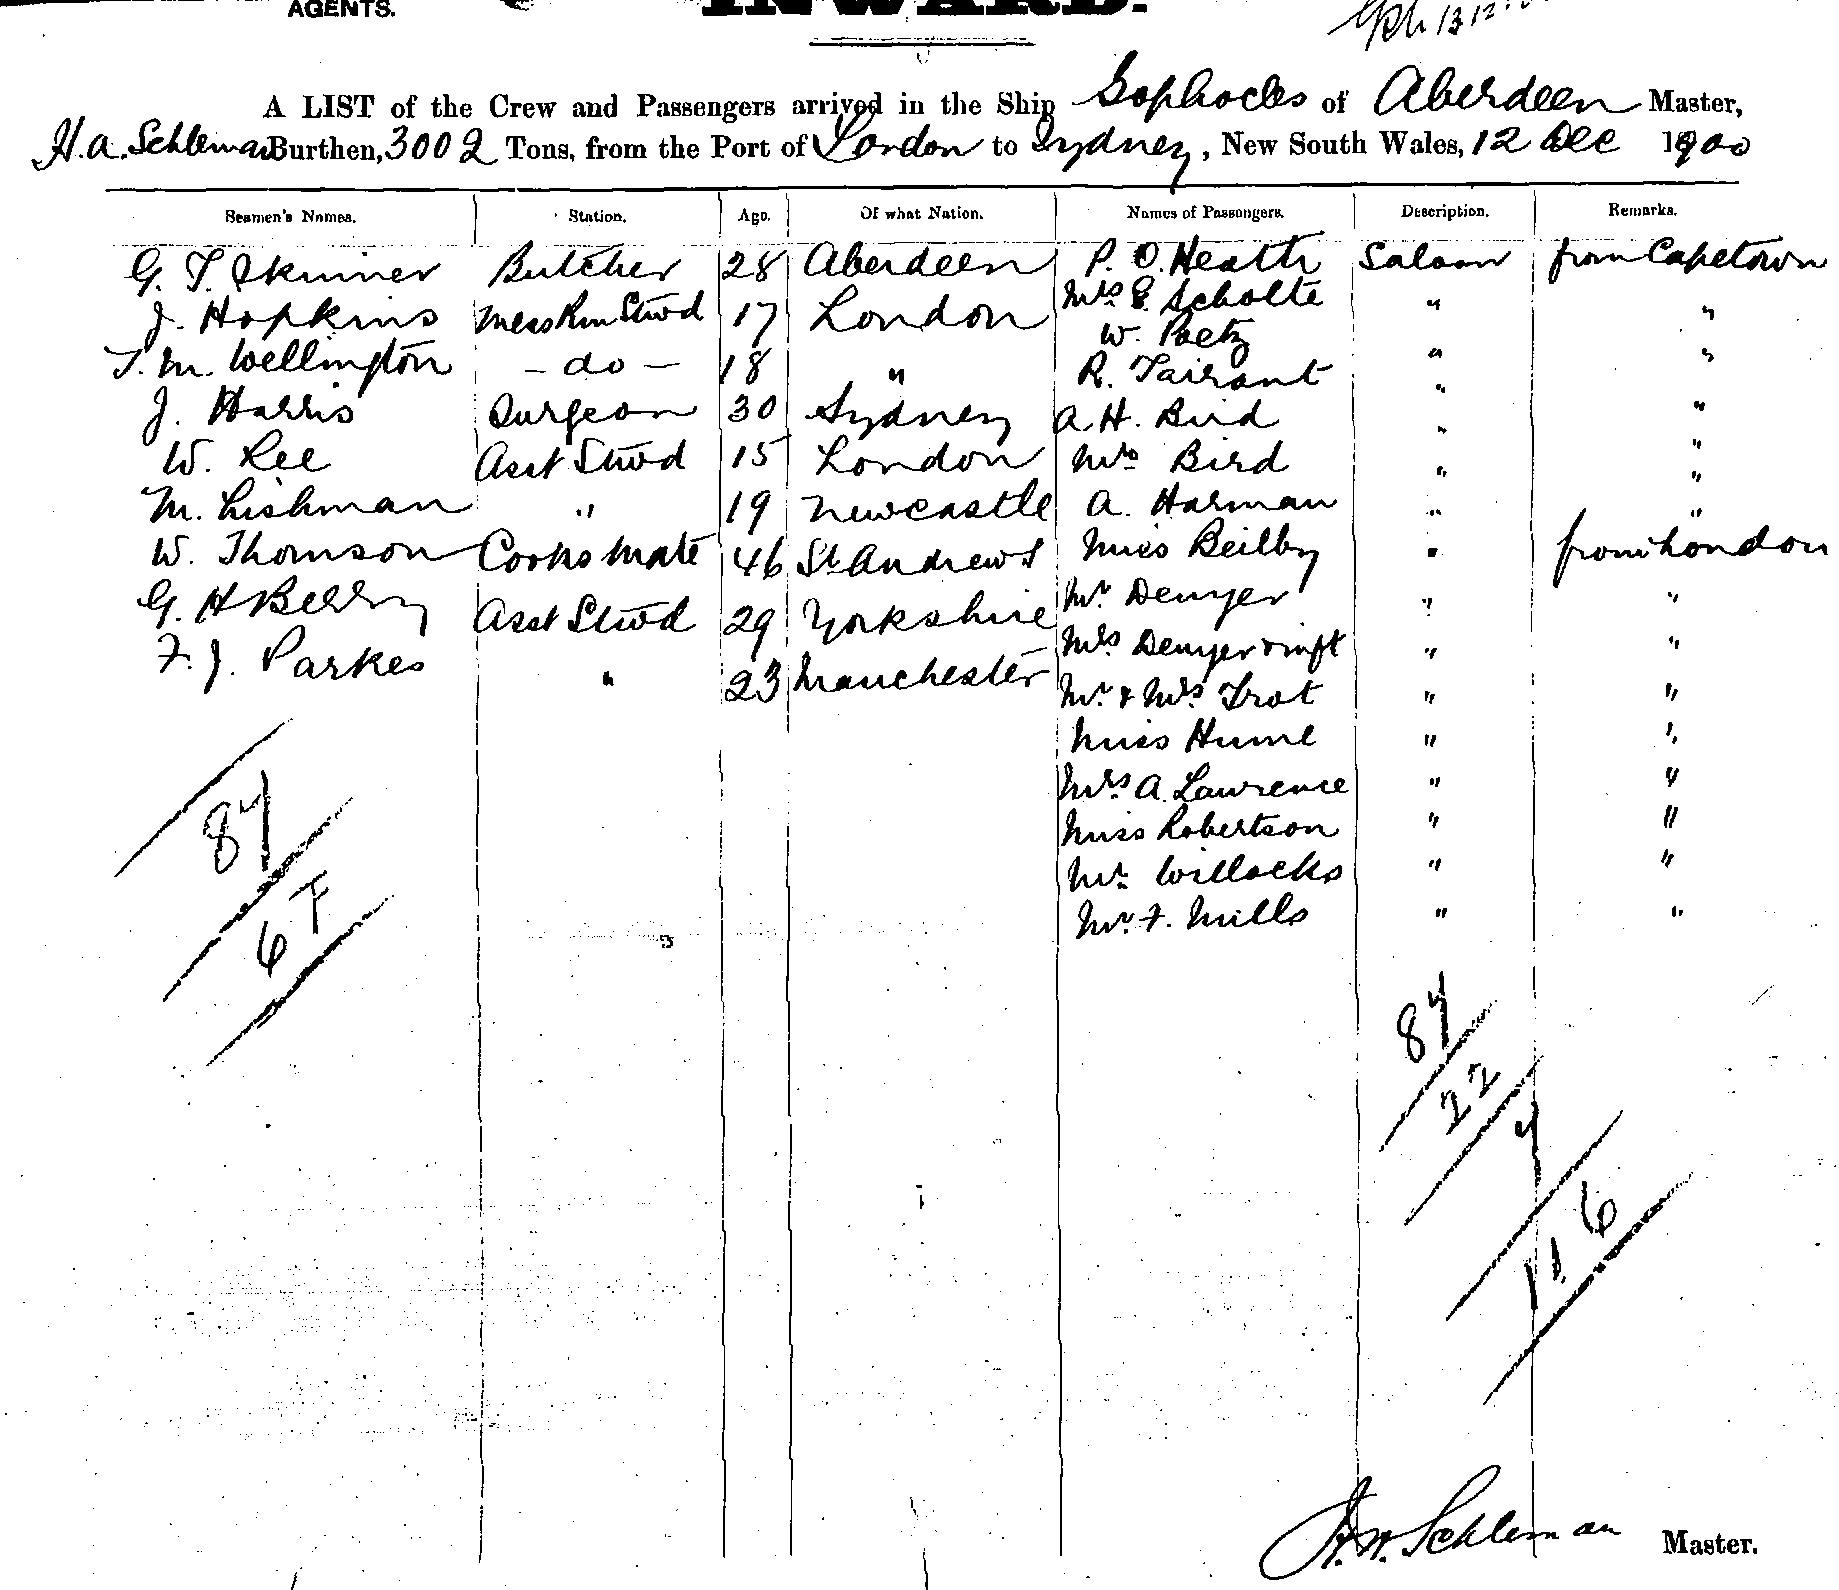 AGENTS.
INWARD.
A LIST of the Crew and Passengers arrived in the Ship Sophocles of Aberdeen Master,
H.A. Schleman Burthen, 3002 Tons, from the Port of London to Sydney, New South Wales, 12 Dec 1900
Seamen's Names. Station. Age. Of what Nation. Names of Passengers. Description. Remarks.
G. T. Skinner Butcher 28 Aberdeen P. O. Heath Saloon from Capetown
J. Hopkins Mess Rm Stwd 17 London Mrs E. Scholte " "
W. Paetz " "
T. M. Wellington - do - 18 " R. Tairant " "
J. Harris Surgeon 30 Sydney A. H. Bird " "
W. Lee Asst Stwd 15 London Mrs Bird " "
M. Lishman " 19 Newcastle A. Harman " "
W. Thomson Cooks Mate 46 St Andrews Miss Beilby " from London
G. H Berry Asst Stwd 29 Yorkshire Mr Denyer " "
F. J. Parkes " 23 Manchester Mrs Denyer & inft " "
Mr. & Mrs Trot " "
Miss Hume " "
Mrs A. Lawrence " "
Miss Robertson " "
Mr. Willocks " "
Mr. F. Mills " "
87
67
87
22
7
116
H. W. Schleman Master.